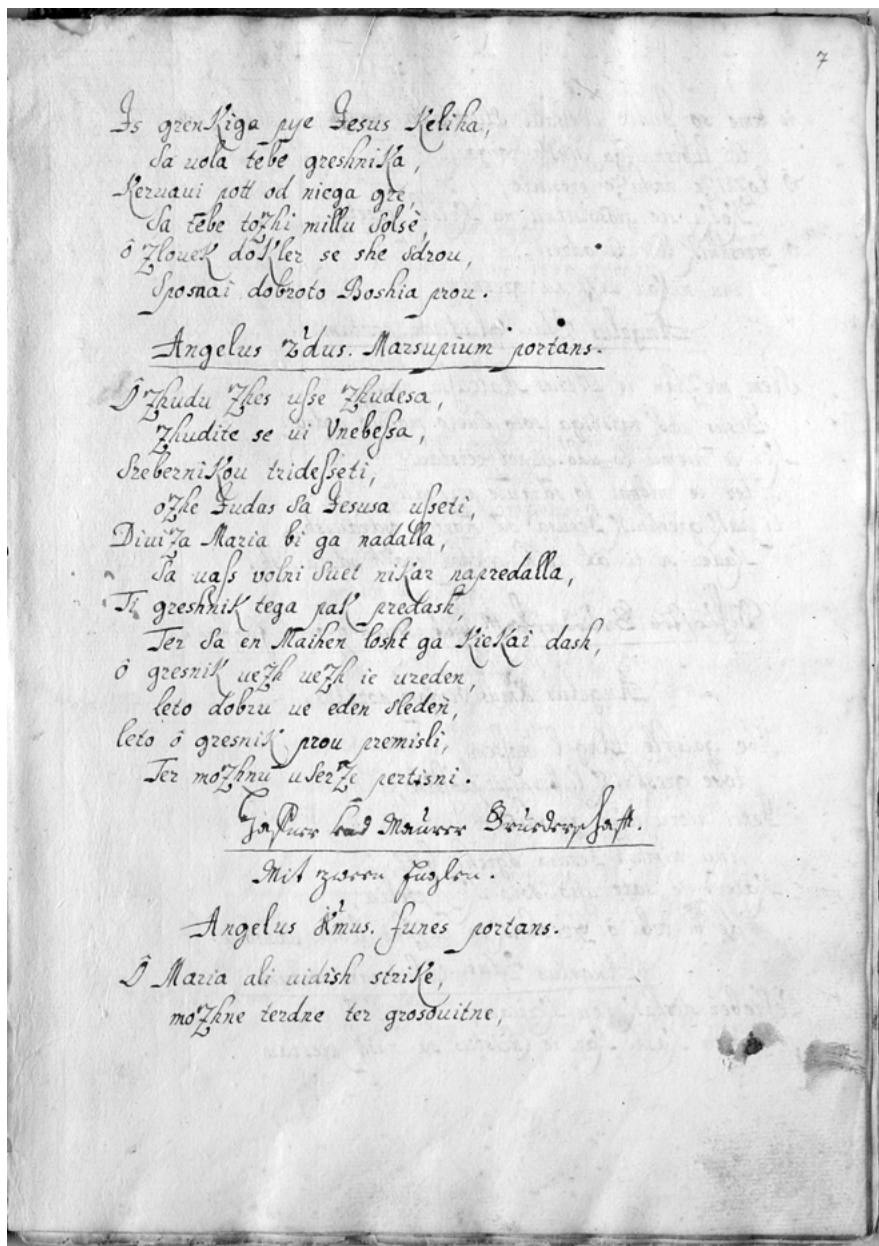 7
Is grenkiga pye Jesus Keliha,
Sa uola tebe greshnika,
Keruaui pott od niega gre,
Sa tebe tozhi millu Solse,
ô Zlouek dokler se she Sdrou,
Sposnai dobroto Boshia prou.
Angelus 2dus. Marsupium portans.
Ô Zhudu Zhes usse Zhudesa,
Zhudite se ui Vnebessa,
Srebernikou tridesseti,
ozhe Judas Sa Jesusa usseti,
Diuiza Maria bi ga nadalla,
Sa uass volni Suet nikar napredalla,
Ti greshnik tega pak predash,
Ter Sa en Maihen losht ga kiekai dash,
ô gresnik uezh uezh ie ureden,
leto dobru ue eden Sleden,
leto ô gresnik prou premisli,
Ter mozhnu uSerze pertisni.
Haffner und Maurer Bruederschafft.
Mit zween Englen.
Angelus Imus. funes portans.
Ô Maria ali uidish strike,
mozhne terdne ter grosouitne,